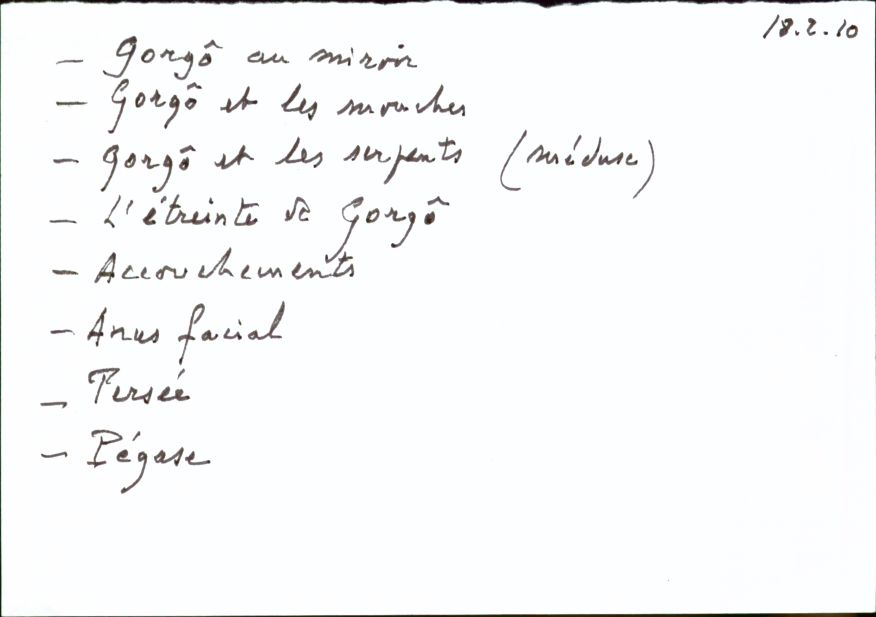 18.2.10
- Gorgô au miroir
- Gorgô et les mouches
- Gorgô et les serpents (méduse)
- L'étreinte de Gorgô
- Accouchements
- Anus facial
- Persée
- Pégase